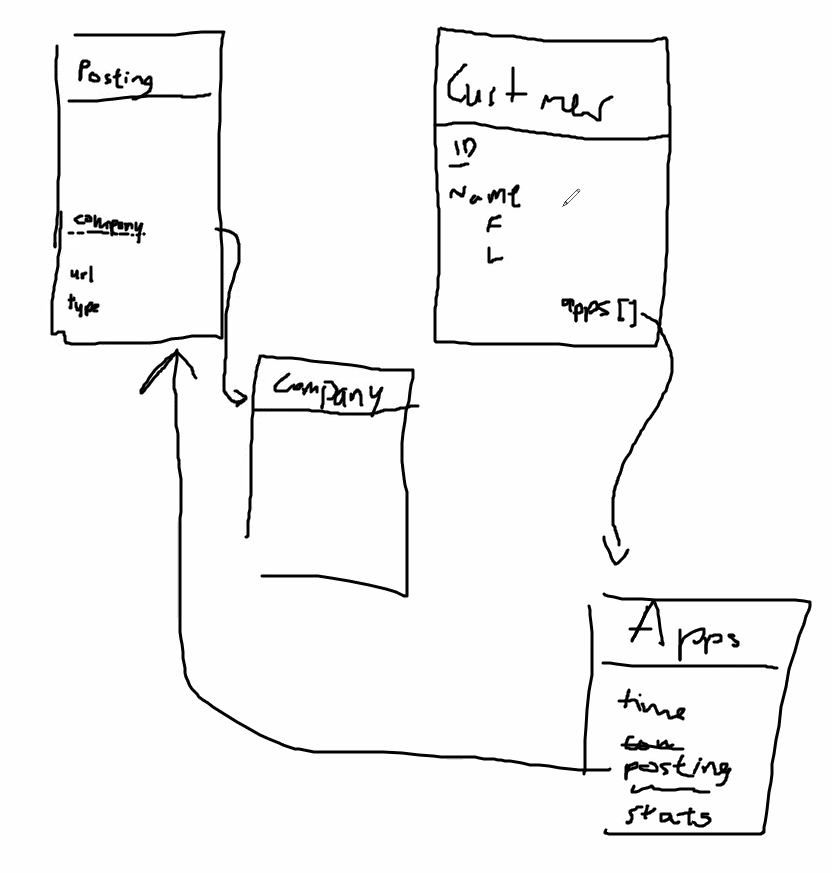 Posting
company
url
type
Custmer
ID
Name
F
L
apps []
Company
Apps
time
posting
stats